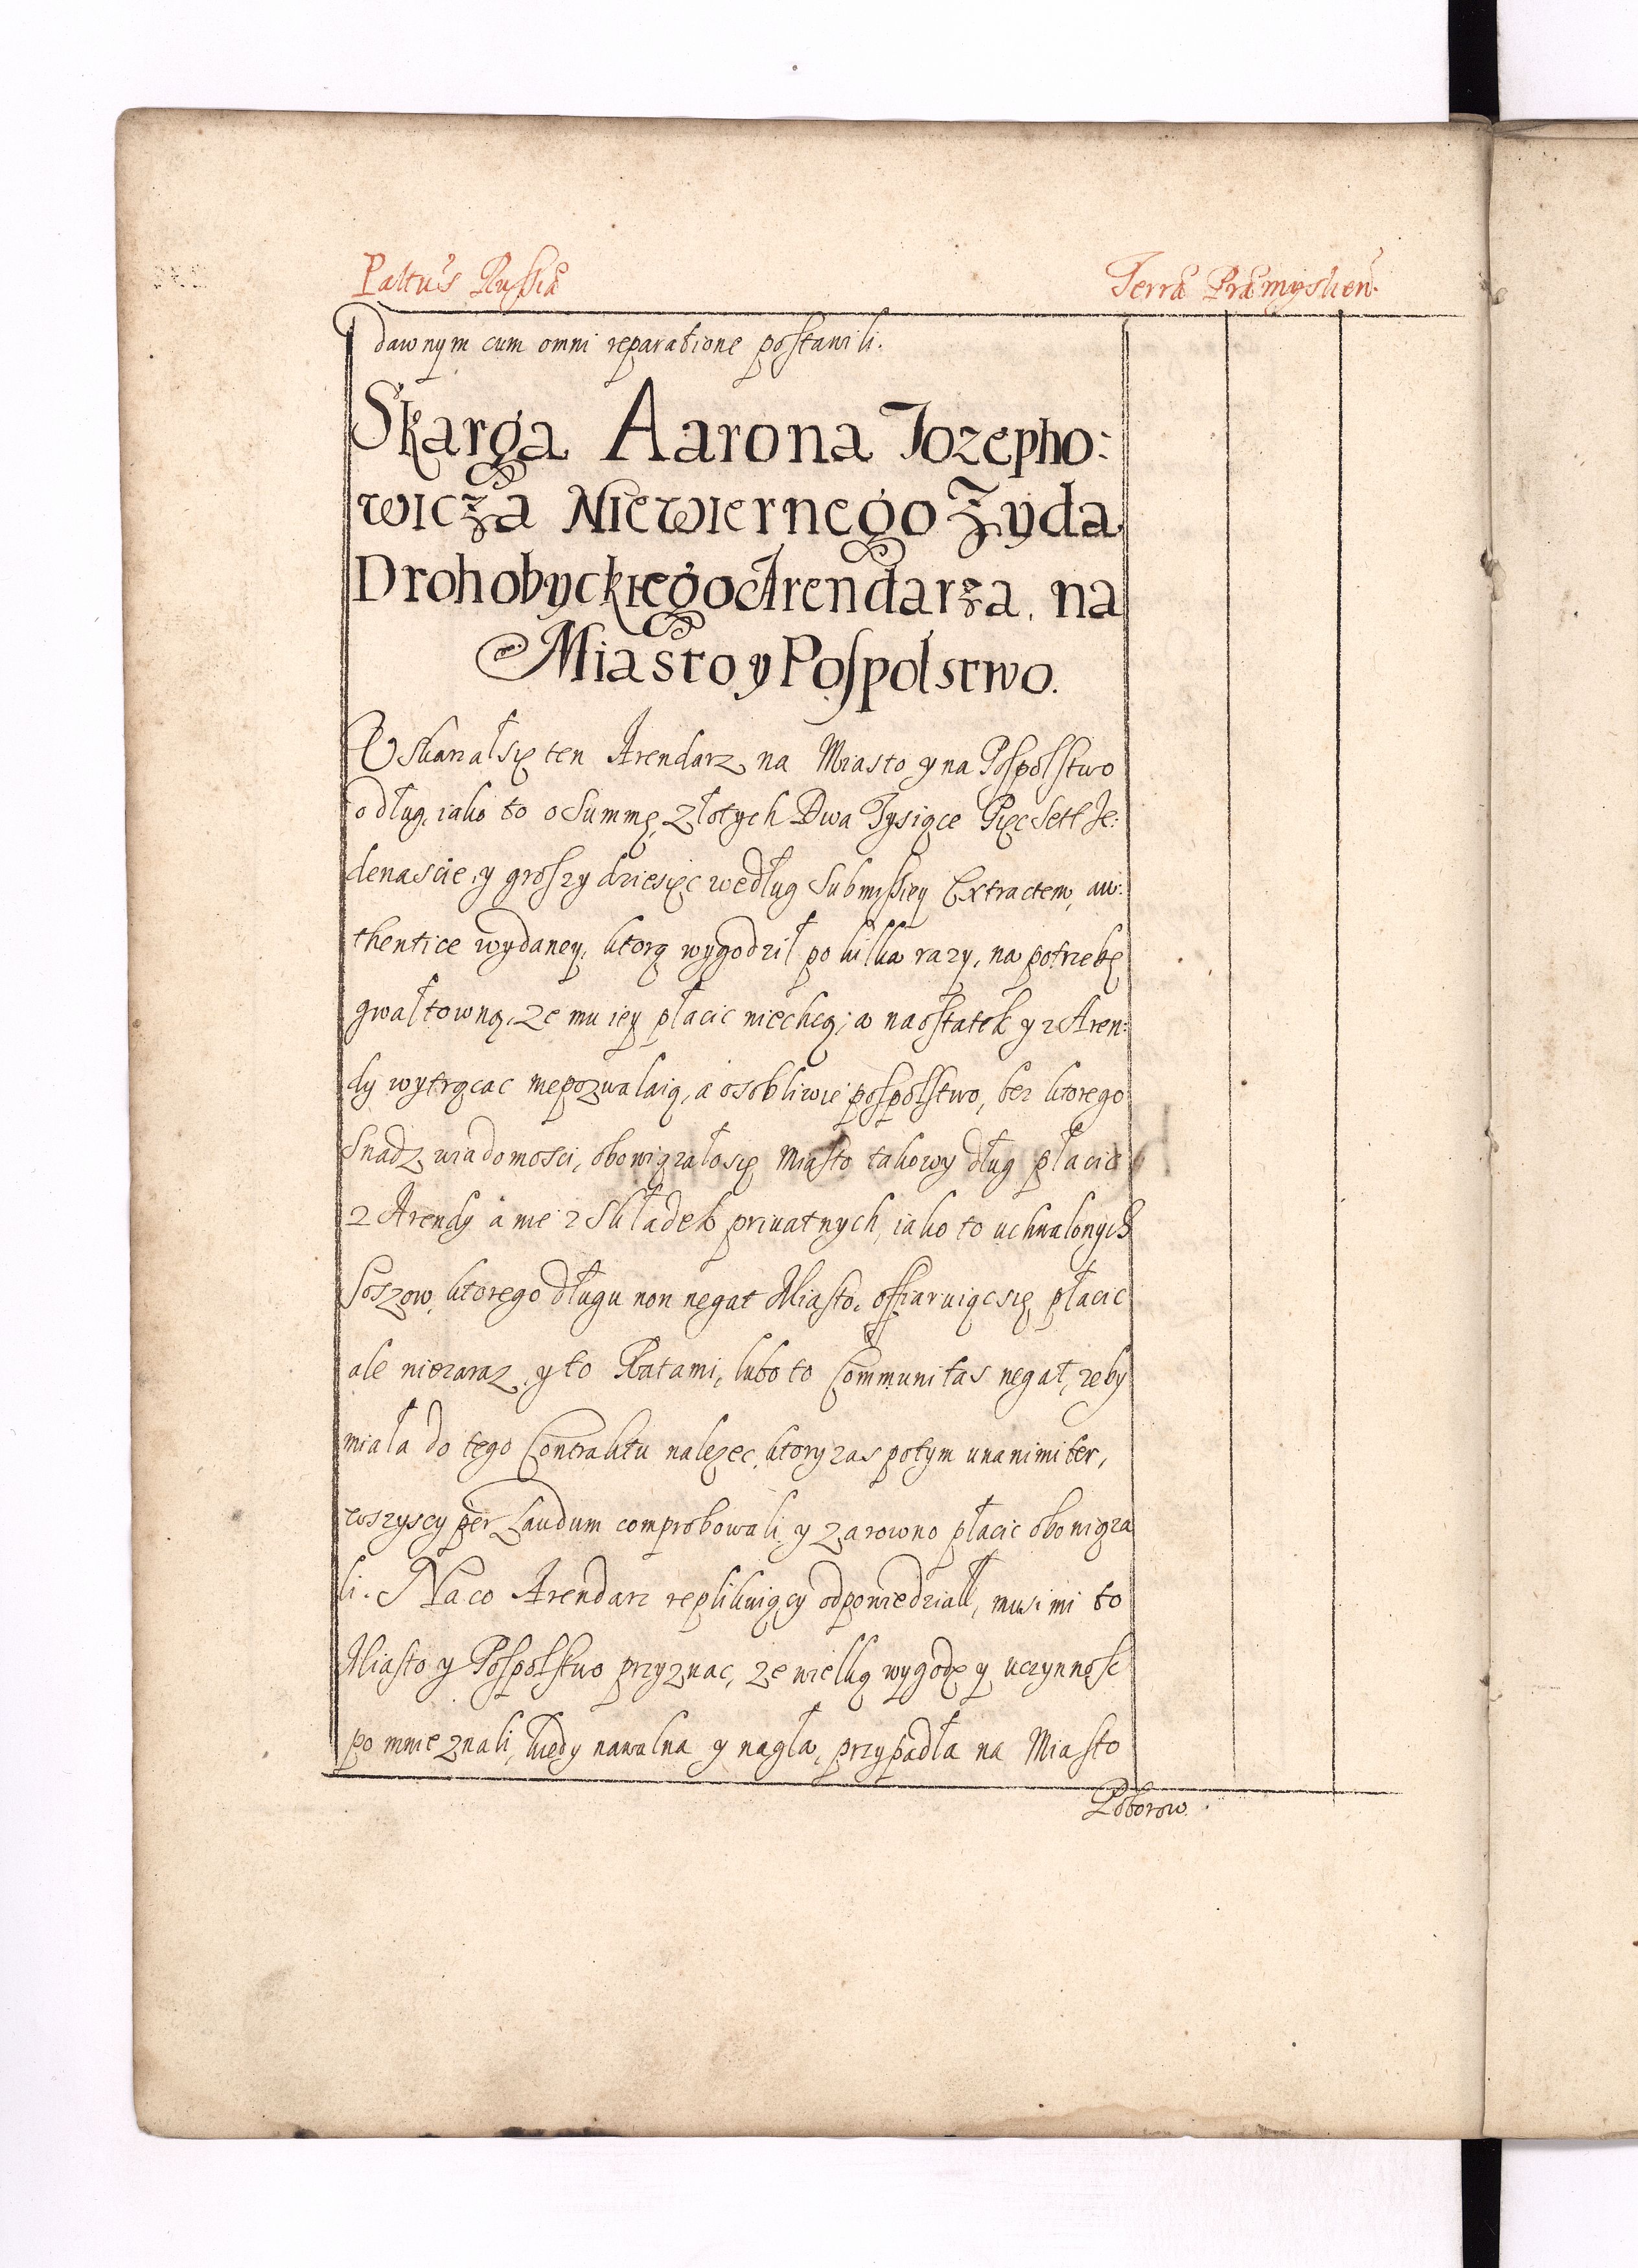 Paltus Russiæ Terræ Præmyslien.
dawnym cum omni reparatione postawili.
Skarga Aarona Jozepho:
wicza Niewiernego Zyda
Drohobyckiego Arendarza, na
Miasto y Pospolstwo.
Uskarzał się ten Arendarz na Miasto y na Pospolstwo
o dług, iako to o Summę Złotych Dwa Tysiące Pięcsett Je:
denascie, y groszy dziesięc według Submissiey Extractem, au:
thentice wydaney, ktorą wygodził po kilka razy, na potrzebę
gwałtowną, ze mu iey płacic niechcą; a naostatek y z Aren:
dy wytrącac niepozwalaią, a osobliwie pospolstwo, bez ktorego
Snadz wiadomosci, obowiązało się Miasto takowy dług płacic
z Arendy a nie z Składek priuatnych, iako to uchwalonych
Soszow, ktorego długu non negat Miasto, offiaruiąc się płacic
ale niezaraz, y to Ratami, lubo to Communitas negat, zeby
miała do tego Contraktu nalezec, ktory zas potym unanimiter,
wszyscy per Laudum comprobowali y zarowno płacic obowiąza
li. Na co Arendarz replikuiący odpowiedział, musi mi to
Miasto y Pospolstwo przyznac, ze wielką wygodę y uczynnosc
po mnie znali, kiedy nawalna y nagła, przypadła na Miasto
Poborow.